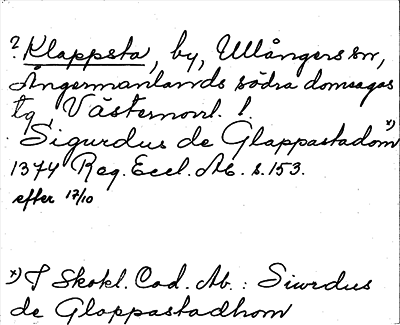 ? Klappsta, by, Ullångers sn,
Ångermanlands södra domsagas
tg, Västernorrl. l.
Sigurdus de Glappastadom x)
1374 Reg. Eccl. AE. s. 153.
efter 17/10
x) I Skokl. Cod. Ab.: Siurdus
de Glappastadhom